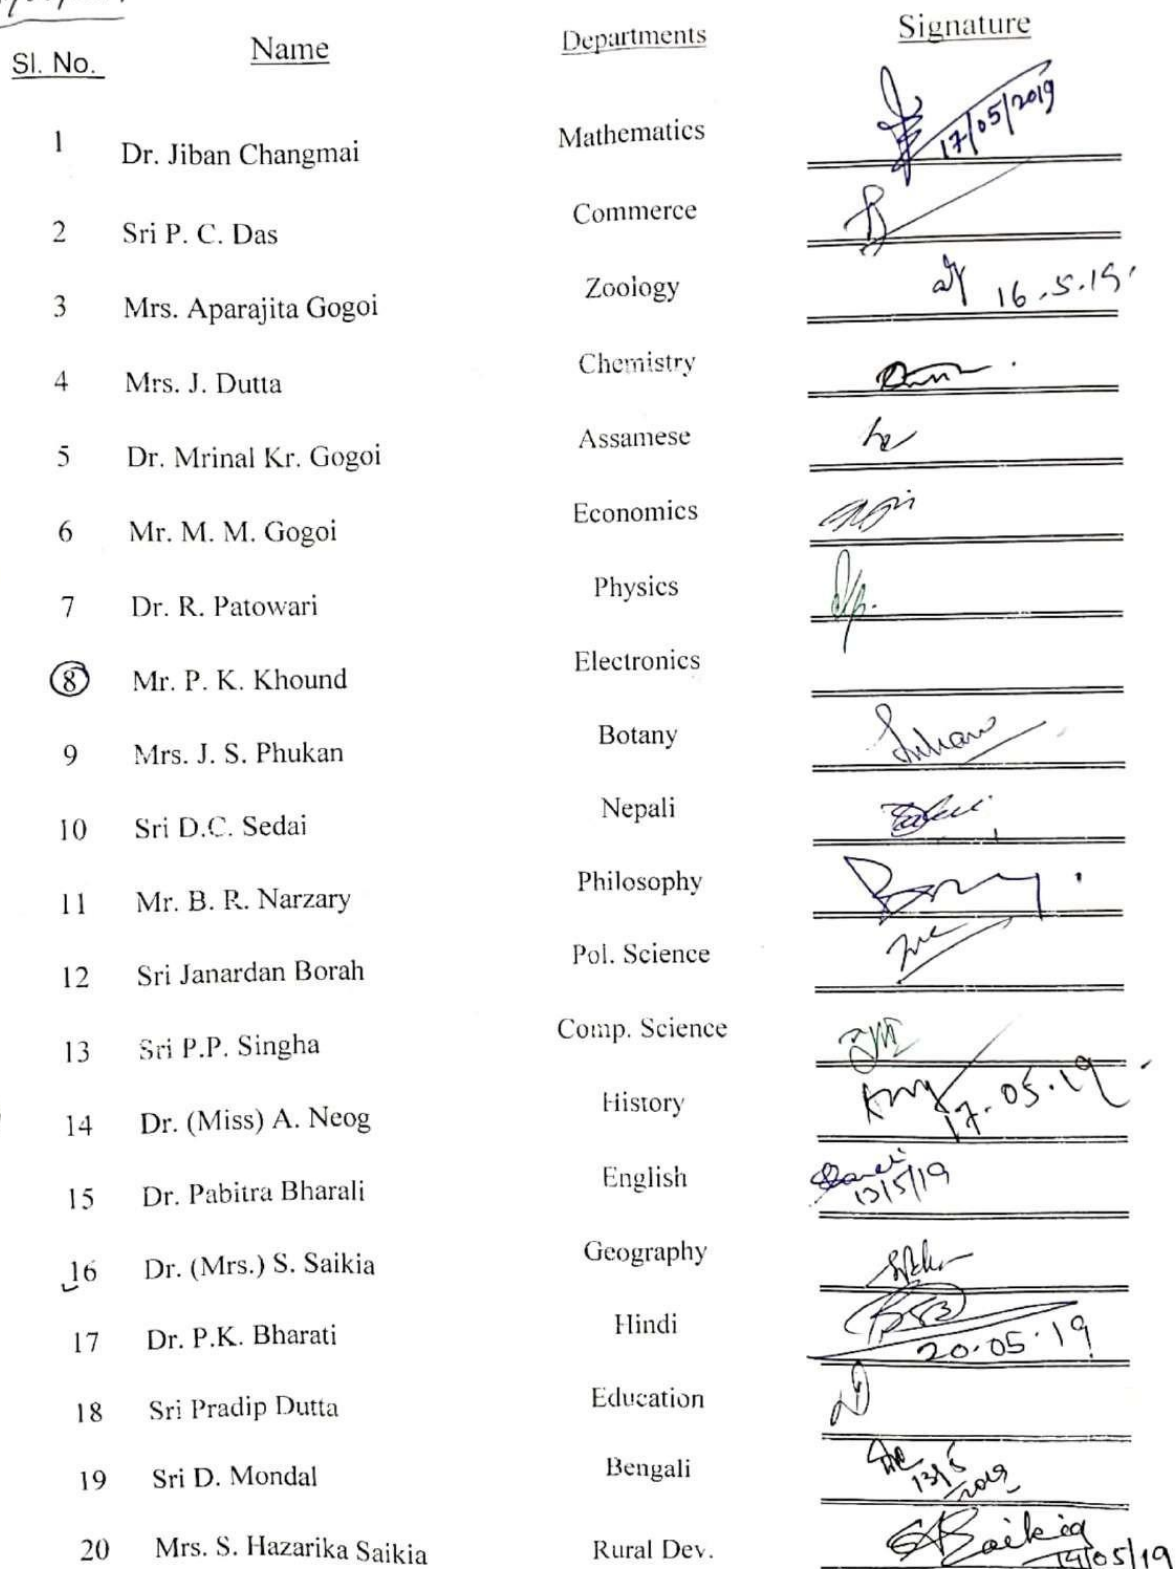 Sl. No. Name Departments Signature
1 Dr. Jiban Changmai Mathematics 17/05/2019
2 Sri P. C. Das Commerce
3 Mrs. Aparajita Gogoi Zoology 16.5.19
4 Mrs. J. Dutta Chemistry
5 Dr. Mrinal Kr. Gogoi Assamese
6 Mr. M. M. Gogoi Economics
7 Dr. R. Patowari Physics
8 Mr. P. K. Khound Electronics
9 Mrs. J. S. Phukan Botany
10 Sri D.C. Sedai Nepali
11 Mr. B. R. Narzary Philosophy
12 Sri Janardan Borah Pol. Science
13 Sri P.P. Singha Comp. Science
14 Dr. (Miss) A. Neog History 17.05.19
15 Dr. Pabitra Bharali English 13/5/19
16 Dr. (Mrs.) S. Saikia Geography
17 Dr. P.K. Bharati Hindi 20.05.19
18 Sri Pradip Dutta Education
19 Sri D. Mondal Bengali 13/5/2019
20 Mrs. S. Hazarika Saikia Rural Dev. Saikia 14/05/19